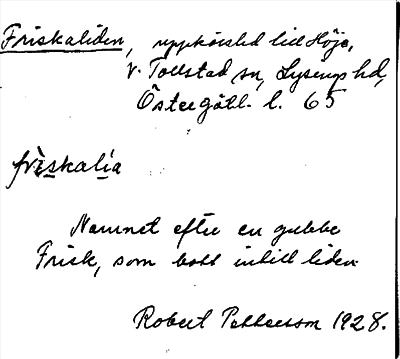 Friskaliden, uppkörslid lid Höje,
V. Tollstad sn, Lysings hd,
Östergötl. l. 65
frìskalia
Namnet efter en gubbe
Frisk, som bott intill liden
Robert Pettersson 1928.